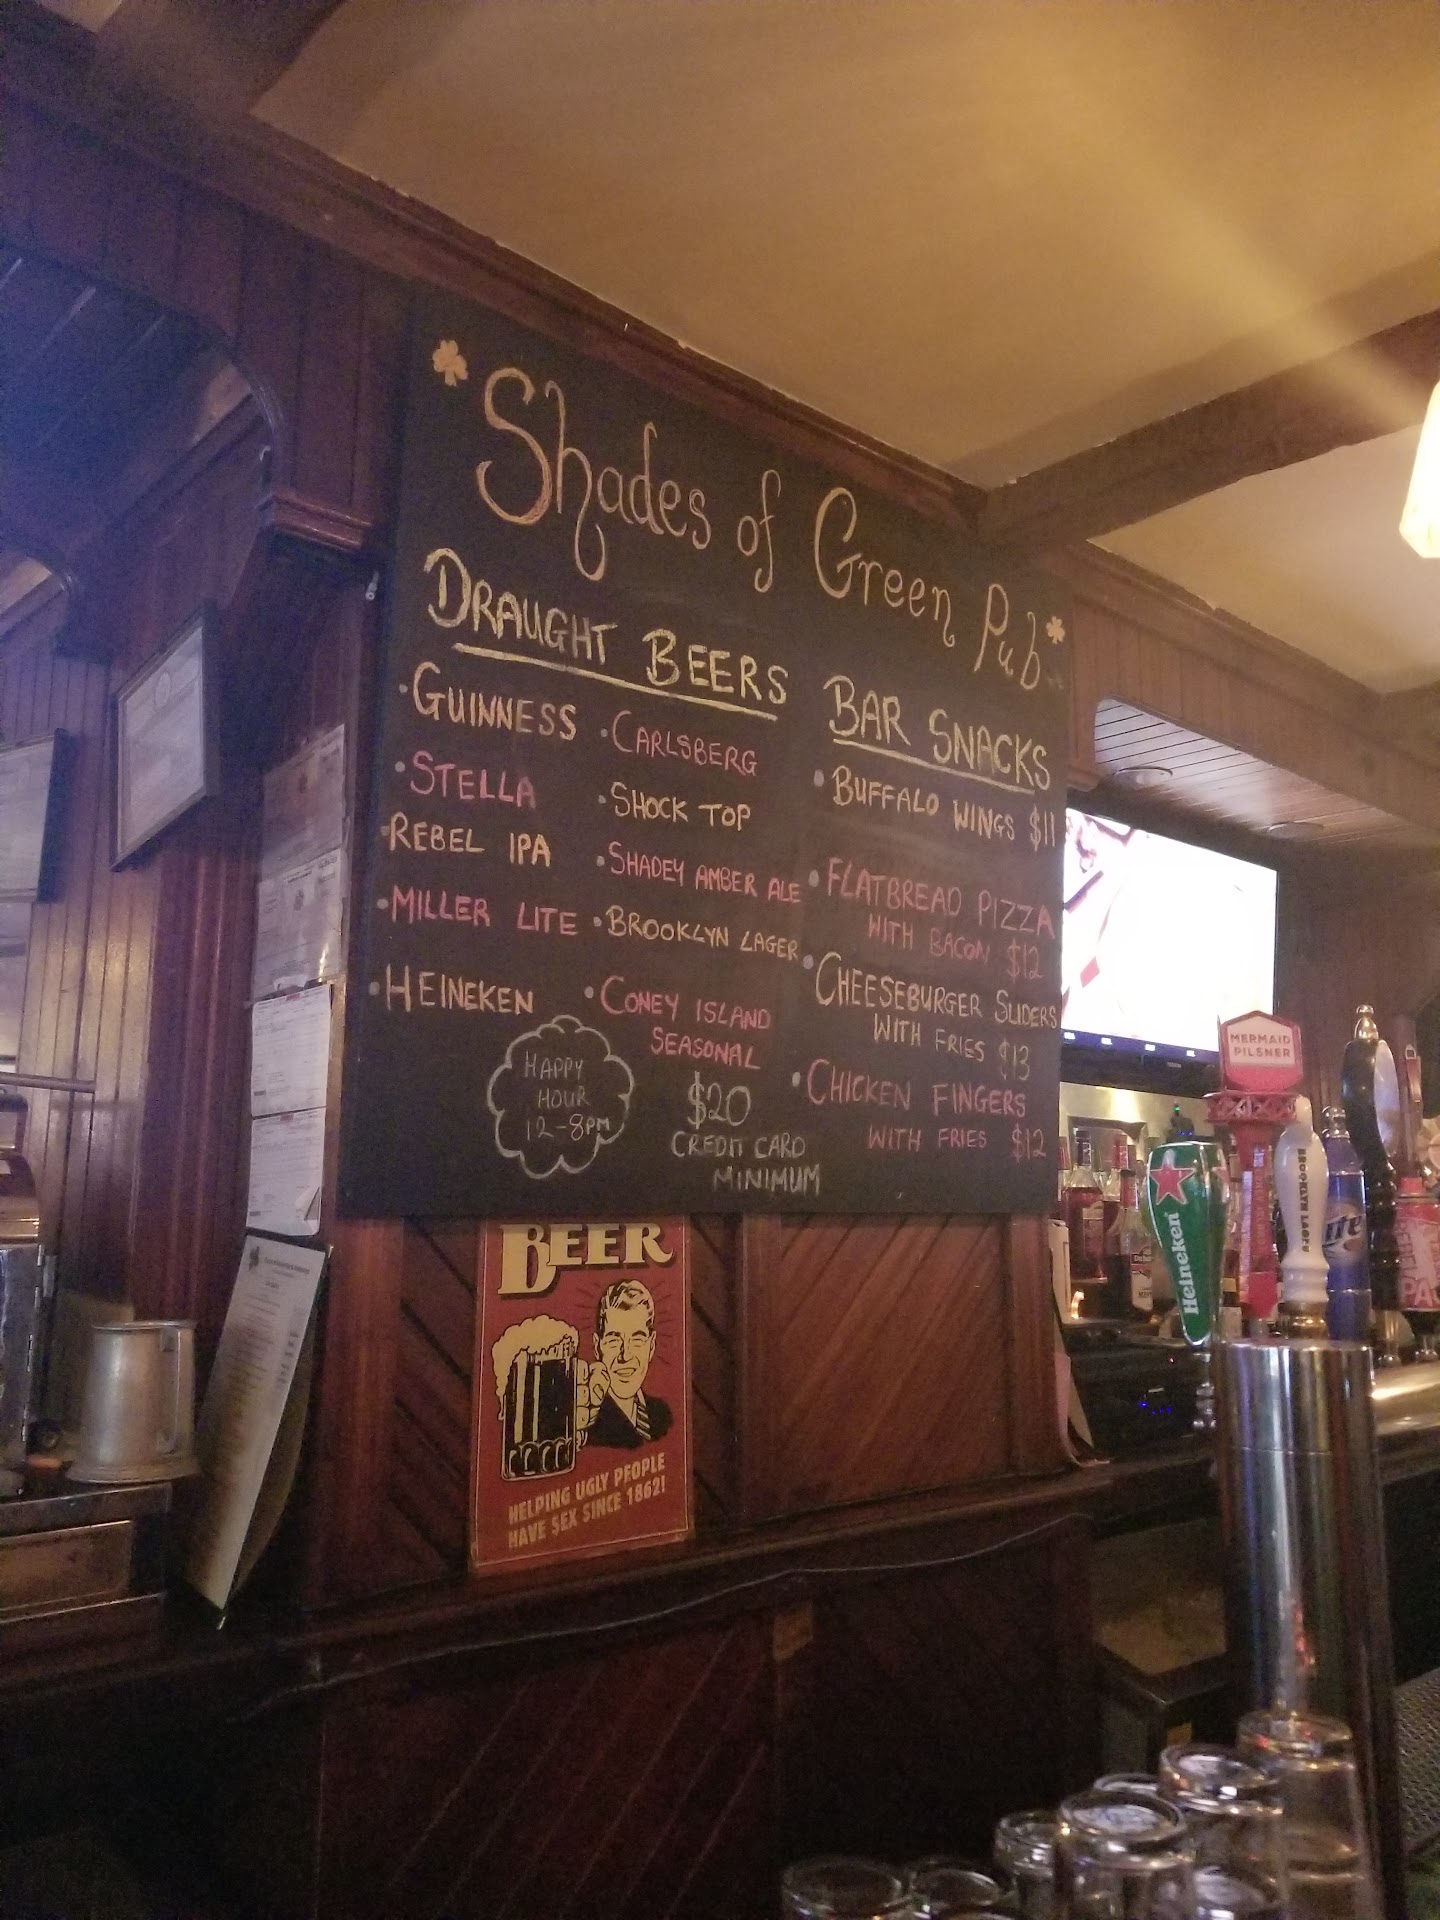 Shades of Green Pub
DRAUGHT BEERS
• GUINNESS
• STELLA
• REBEL IPA
• MILLER LITE
• HEINEKEN
• CARLSBERG
• SHOCK TOP
• SHADEY AMBER ALE
• BROOKLYN LAGER
• CONEY ISLAND
SEASONAL
HAPPY
HOUR
12-8PM
$20
CREDIT CARD
MINIMUM
BAR SNACKS
• BUFFALO WINGS $11
• FLATBREAD PIZZA
WITH BACON $12
• CHEESEBURGER SLIDERS
WITH FRIES $13
• CHICKEN FINGERS
WITH FRIES $12
BEER
HELPING UGLY PEOPLE
HAVE SEX SINCE 1862!
MERMAID
PILSNER
Heineken
BROOKLYN LAGER